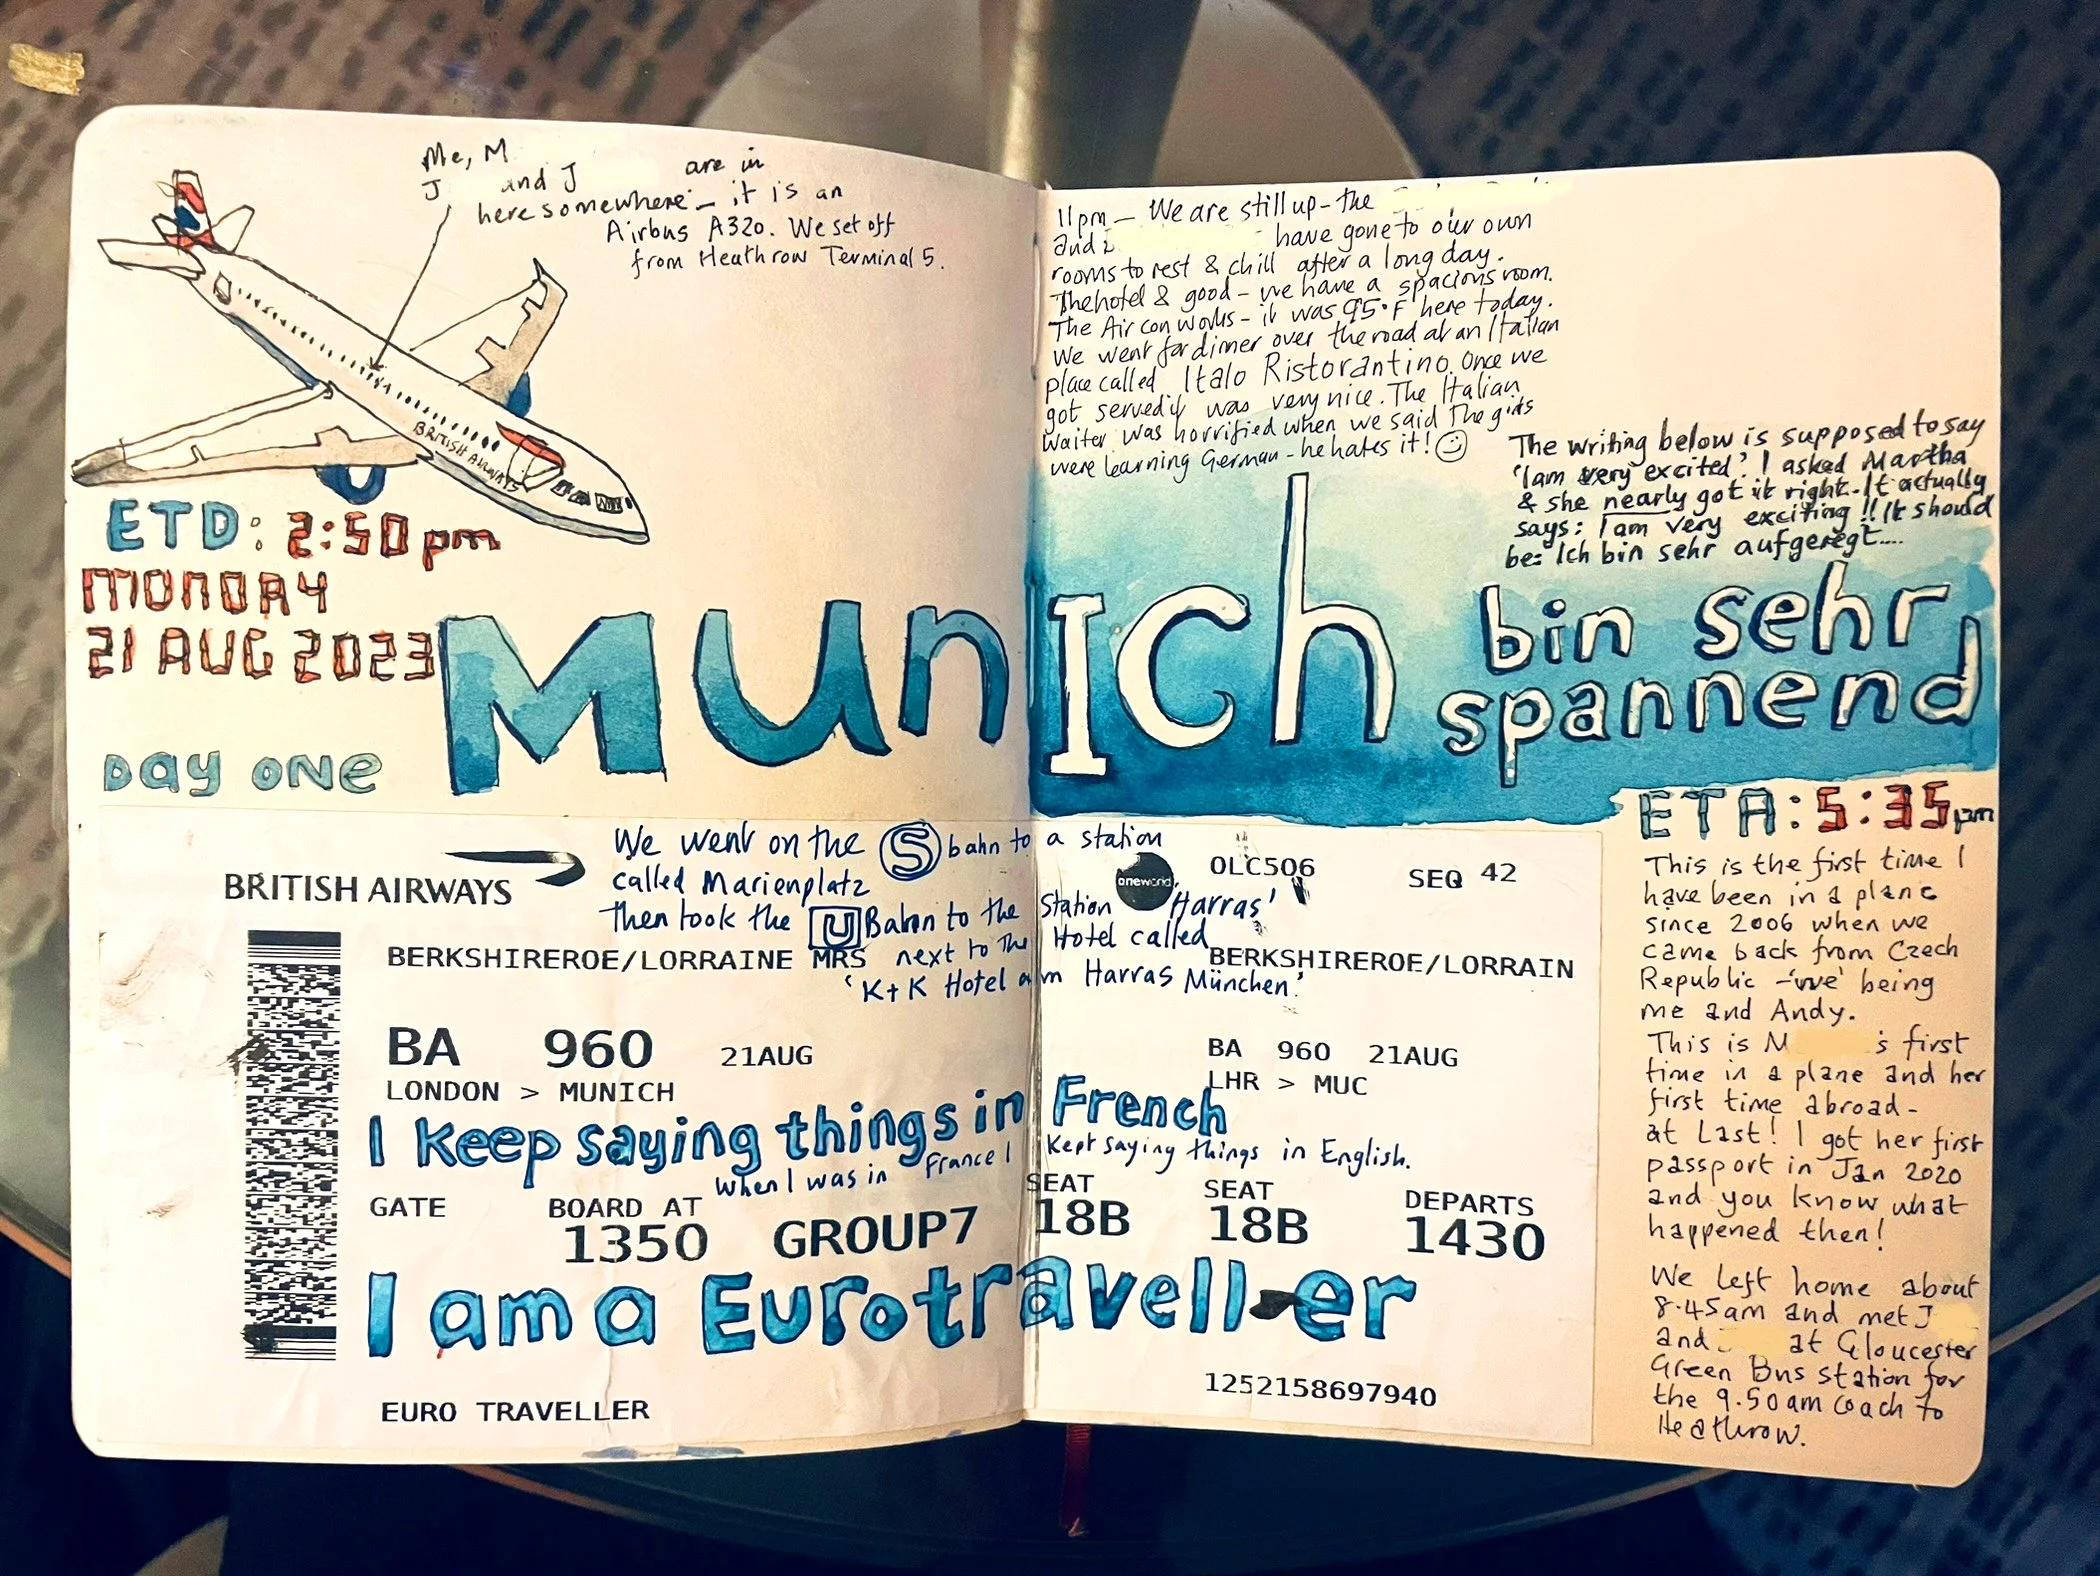 Me, M
J and J are in
here somewhere – it is an
Airbus A320. We set off
from Heathrow Terminal 5.
BRITISH AIRWAYS
ETD: 2:50pm
MONDAY
21 AUG 2023
Day ONE
MunIch bin sehr
spannend
11pm – We are still up – the
and have gone to our own
rooms to rest & chill after a long day.
The hotel & good – we have a spacious room.
The Air con works – it was 95°F here today.
We went for dinner over the road at an Italian
place called Italo Ristorantino. Once we
got served it was very nice. The Italian
waiter was horrified when we said The girls
were learning German – he hates it! ☺
The writing below is supposed to say
'I am very excited'. I asked Martha
& she nearly got it right. It actually
says: I am very exciting!! It should
be: Ich bin sehr aufgeregt....
ETA: 5:35pm
This is the first time I
have been in a plane
since 2006 when we
came back from Czech
Republic – 'we' being
me and Andy.
This is M 's first
time in a plane and her
first time abroad –
at Last! I got her first
passport in Jan 2020
and you know what
happened then!
We left home about
8.45am and met J
and at Gloucester
Green Bus station for
the 9.50am coach to
Heathrow.
BRITISH AIRWAYS
We went on the S bahn to a station
called Marienplatz
Then took the U Bahn to the Station 'Harras'
next to the Hotel called
'K+K Hotel am Harras München.'
oneworld
OLC506
SEQ 42
BERKSHIREROE/LORRAINE MRS
BERKSHIREROE/LORRAIN
BA 960 21AUG
LONDON > MUNICH
BA 960 21AUG
LHR > MUC
I keep saying things in French
when I was in France I kept saying things in English.
GATE
BOARD AT
1350
GROUP7
SEAT
18B
SEAT
18B
DEPARTS
1430
I am a Eurotraveller
EURO TRAVELLER
1252158697940